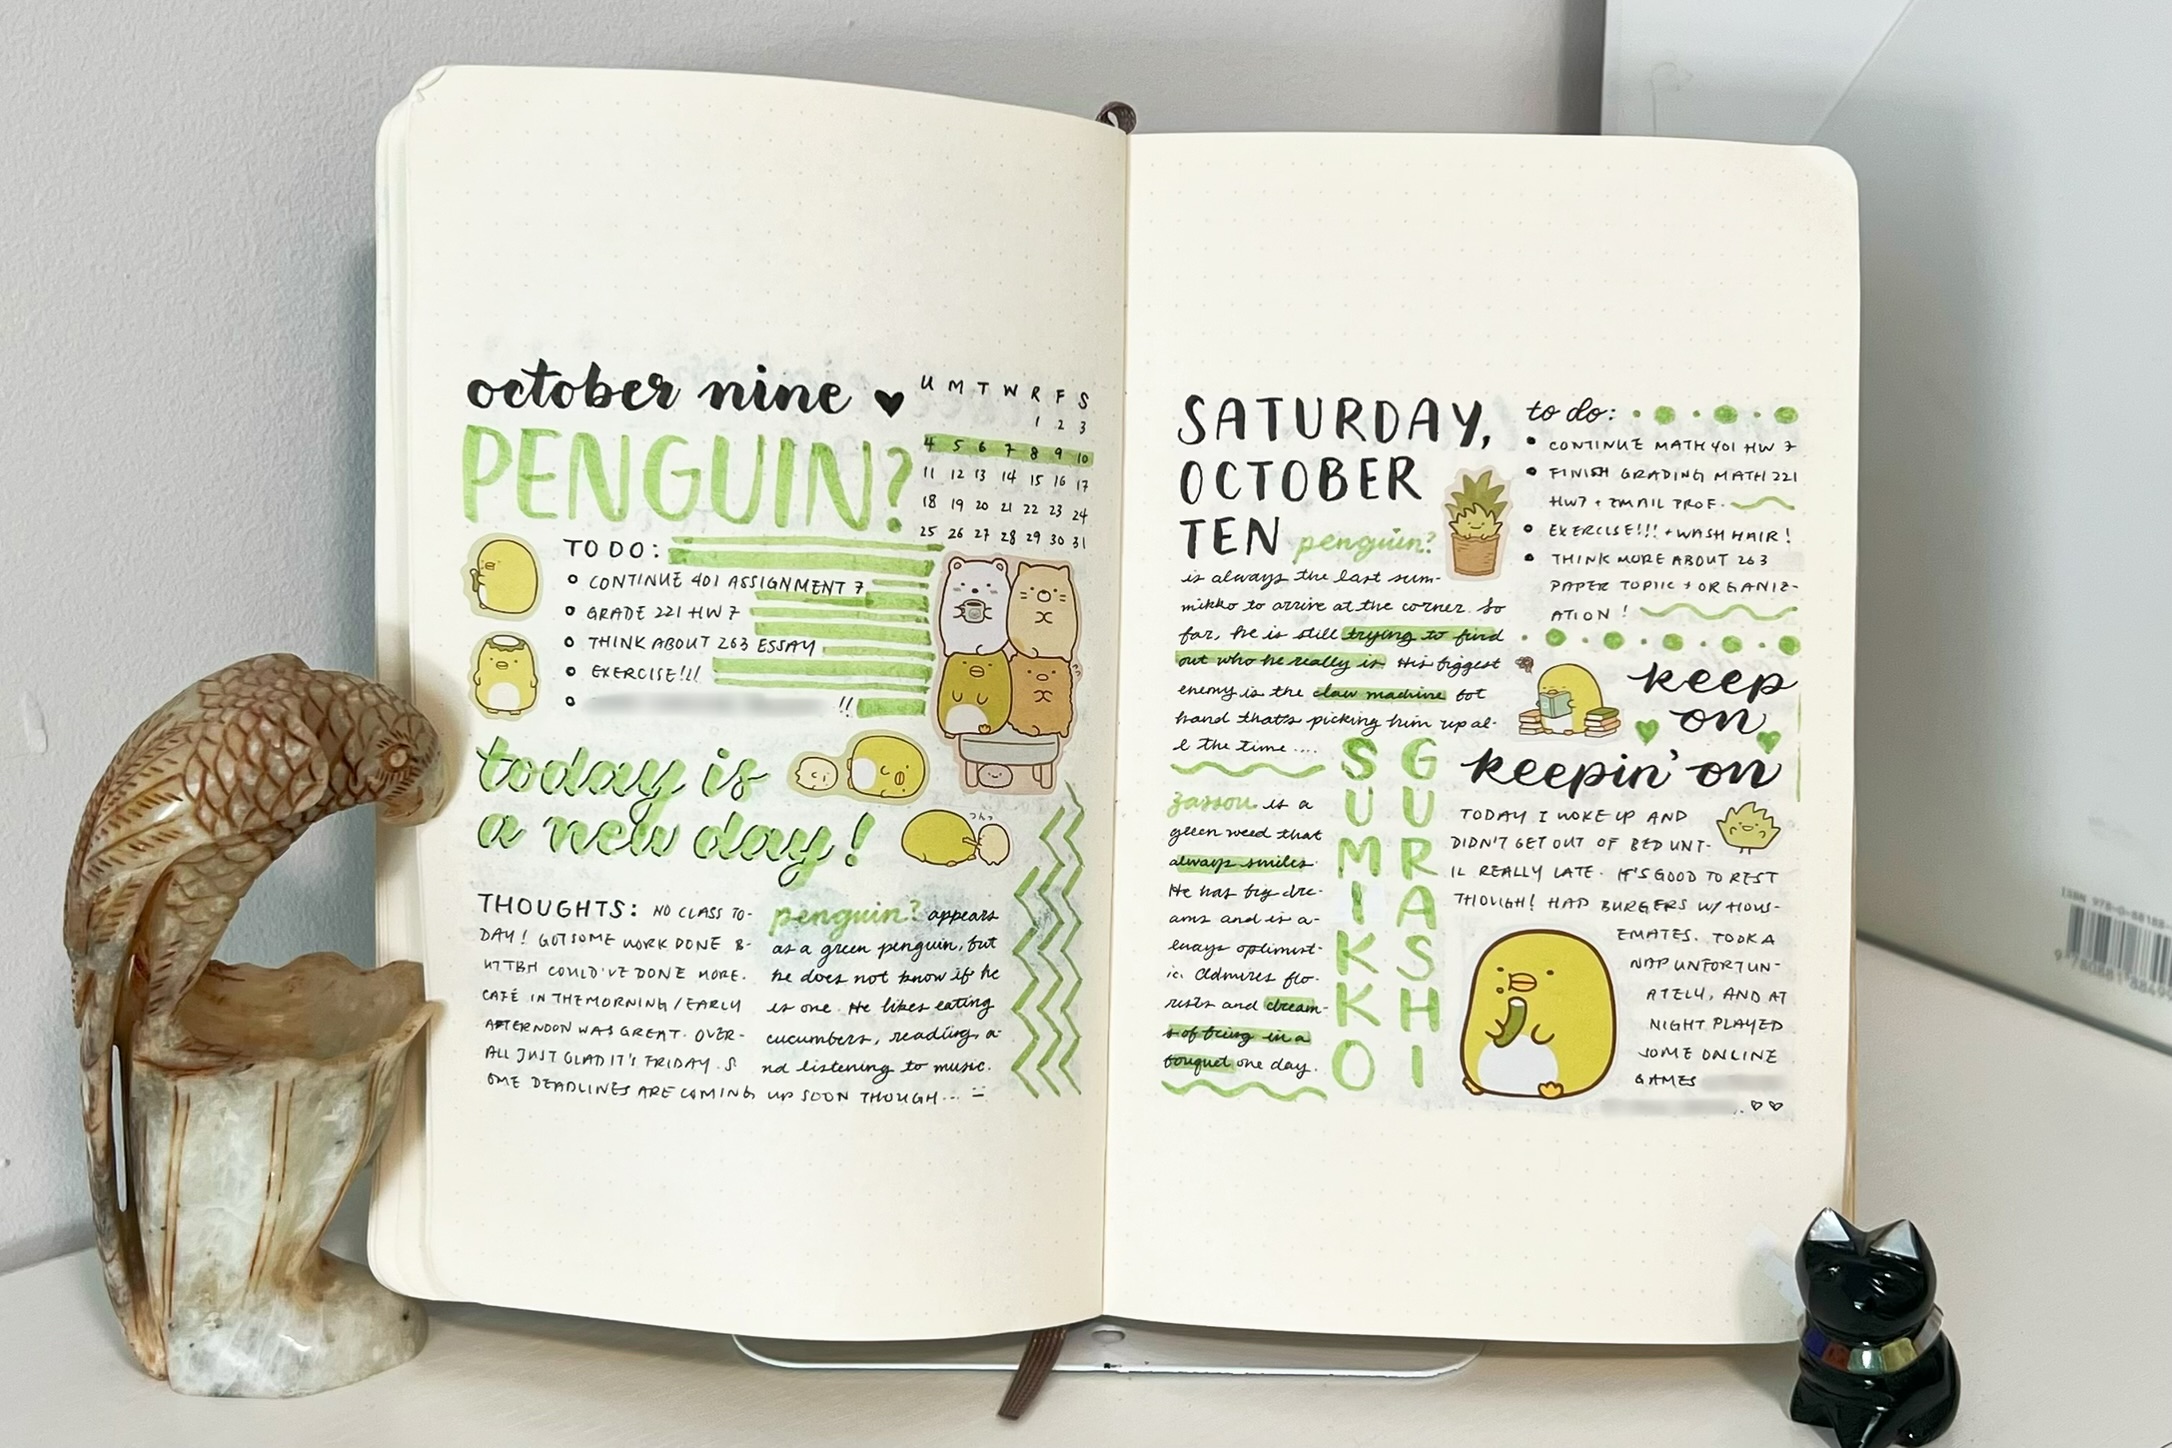 october nine ♥
PENGUIN?
U M T W R F S
1 2 3
4 5 6 7 8 9 10
11 12 13 14 15 16 17
18 19 20 21 22 23 24
25 26 27 28 29 30 31
TO DO:
CONTINUE 401 ASSIGNMENT 7
GRADE 221 HW 7
THINK ABOUT 263 ESSAY
EXERCISE!!!
!!
today is
a new day!
THOUGHTS: NO CLASS TO-
DAY! GOT SOME WORK DONE B-
UT TBH COULD'VE DONE MORE.
CAFÉ IN THE MORNING/EARLY
AFTERNOON WAS GREAT. OVER-
ALL JUST GLAD IT'S FRIDAY. S
OME DEADLINES ARE COMING UP SOON THOUGH...
penguin? appears
as a green penguin, but
he does not know if he
is one. He likes eating
cucumbers, reading, a-
nd listening to music.
SATURDAY,
OCTOBER
TEN penguin?
is always the last sum-
mikko to arrive at the corner. So
far, he is still trying to find
out who he really is. His biggest
enemy is the claw machine bot
hand that's picking him up al-
l the time....
zassou is a
green weed that
always smiles.
He has big dre-
ams and is a-
lways optimist-
ic. Admires flo-
rists and dream-
s of being in a
bouquet one day.
SUMIKKO
GURASHI
to do:
CONTINUE MATH 401 HW 7
FINISH GRADING MATH 221
HW7 + EMAIL PROF.
EXERCISE!!! + WASH HAIR!
THINK MORE ABOUT 263
PAPER TOPIC + ORGANIZ-
ATION!
keep
on
keepin' on
TODAY I WOKE UP AND
DIDN'T GET OUT OF BED UNT-
IL REALLY LATE. IT'S GOOD TO REST
THOUGH! HAD BURGERS W/ HOUS-
EMATES. TOOK A
NAP UNFORTUN-
ATELY, AND AT
NIGHT PLAYED
SOME ONLINE
GAMES
. ♡♡